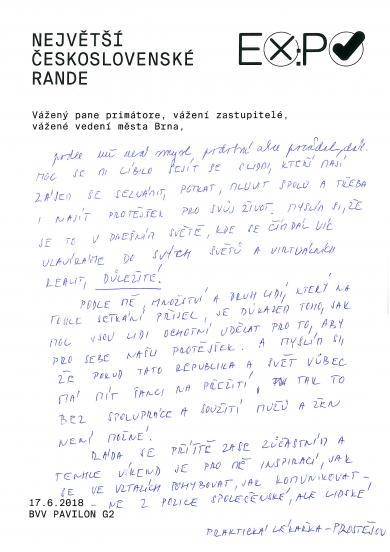 NEJVĚTŠÍ
ČESKOSLOVENSKÉ
RANDE
EX:PO
Vážený pane primátore, vážení zastupitelé,
vážené vedení města Brna,
podle mě má smysl podobné akce pořádat dál.
MOC SE MI LÍBILO SEJÍT SE S LIDMI, KTEŘÍ MAJÍ
ZÁJEM SE SEZNÁMIT, POTKAT, MLUVIT SPOLU A TŘEBA
I NAJÍT PROTĚJŠEK PRO SVŮJ ŽIVOT. MYSLÍM SI, ŽE
JE TO V DNEŠNÍM SVĚTĚ, KDE SE ČÍM DÁL VÍC
UZAVÍRÁME DO SVÝCH SVĚTŮ A VIRTUÁLNÍCH
REALIT, DŮLEŽITÉ!
PODLE MĚ, MNOŽSTVÍ A DRUH LIDÍ, KTERÝ NA
TOHLE SETKÁNÍ PŘIJEL, JE DŮKAZEM TOHO, JAK
MOC JSOU LIDI OCHOTNÍ UDĚLAT PRO TO, ABY
PRO SEBE NAŠLI PROTĚJŠEK. A MYSLÍM SI,
ŽE POKUD TATO REPUBLIKA A SVĚT VŮBEC
MÁ MÍT ŠANCI NA PŘEŽITÍ, TAK TO
BEZ SPOLUPRÁCE A SOUŽITÍ MUŽŮ A ŽEN
NENÍ MOŽNÉ.
RÁDA SE PŘÍŠTĚ ZASE ZÚČASTNÍM A
TENHLE VÍKEND JE PRO MĚ INSPIRACÍ, JAK
SE VE VZTAZÍCH POHYBOVAT, JAK KOMUNIKOVAT -
- NE Z POZICE SPOLEČENSKÉ, ALE LIDSKÉ!
17.6.2018
BVV PAVILON G2
PRAKTICKÁ LÉKAŘKA - PROSTĚJOV